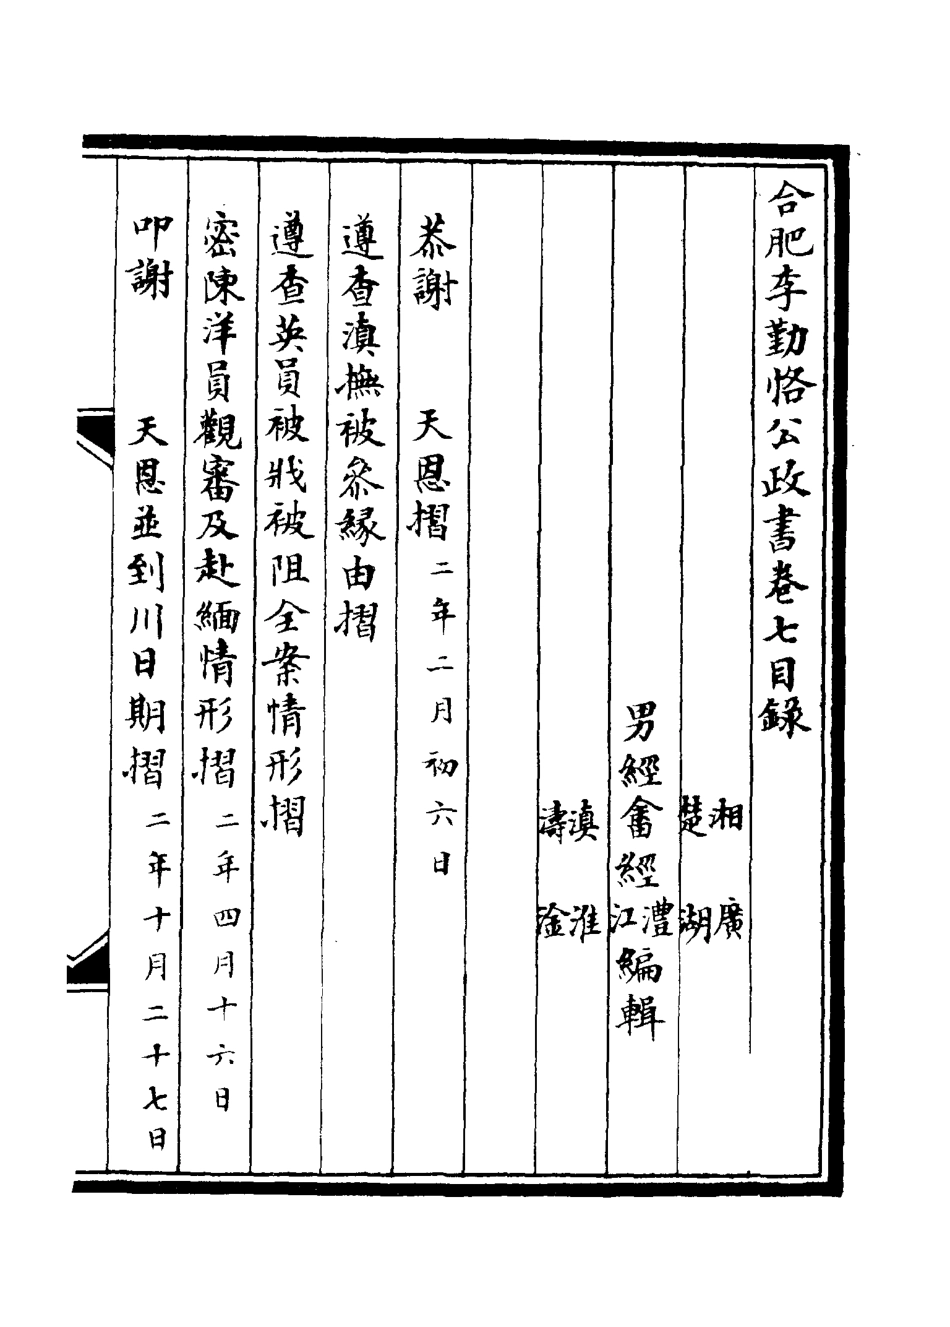 合肥李勤恪公政書卷七目錄
湘 廣
楚 湖
男經畬經澧江編輯
滇 淮
濤 淦
恭謝 天恩摺二年二月初六日
遵查滇撫被叅緣由摺
遵查英員被戕被阻全案情形摺
密陳洋員觀審及赴緬情形摺二年四月十六日
叩謝 天恩並到川日期摺二年十月二十七日